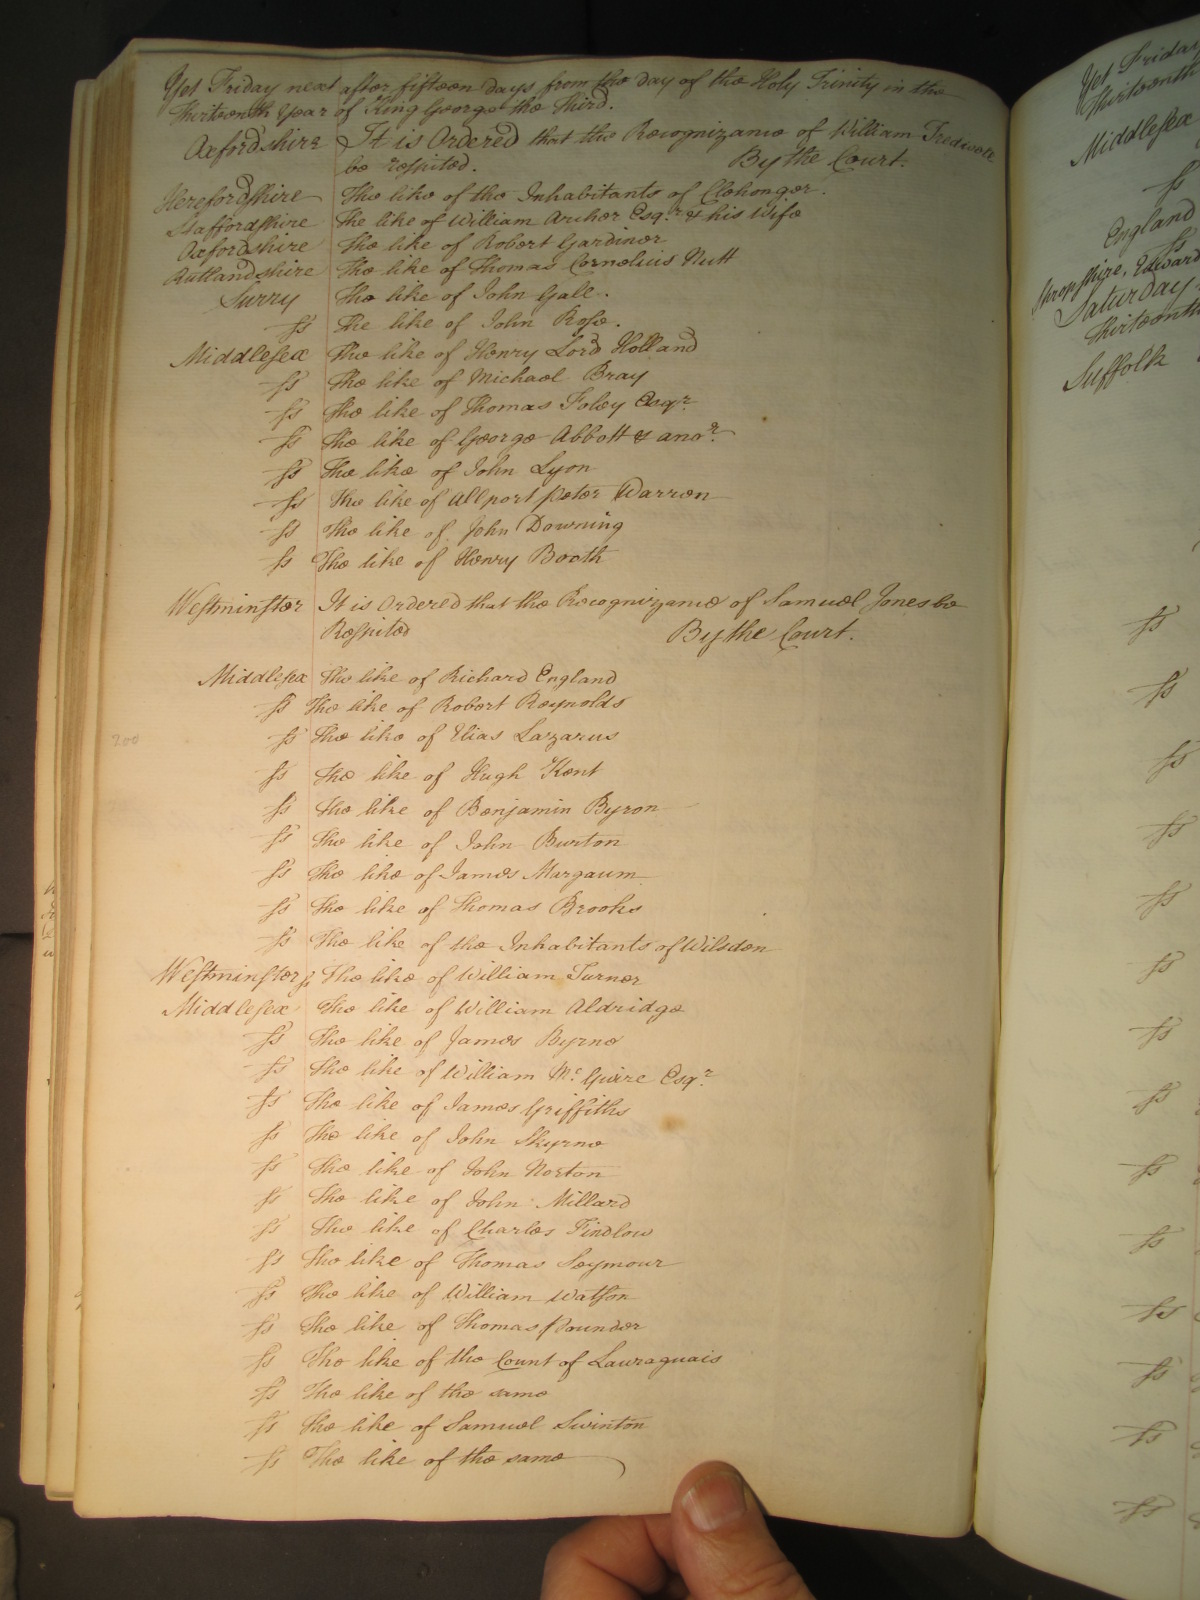 Yet Friday next after fifteen days from the day of the Holy Trinity in the
thirteenth Year of King George the Third.
Oxfordshire It is Ordered that the Recognizance of William Tredwell
be respited. By the Court.
Herefordshire The like of the Inhabitants of Clehonger.
Staffordshire The like of William Archer Esqr. & his Wife
Oxfordshire The like of Robert Gardiner
Rutlandshire The like of Thomas Cornelius Nutt
Surry The like of John Gall.
ss The like of John Rose.
Middlesex The like of Henry Lord Holland
ss The like of Michael Bray
ss The like of Thomas Foley Esqr.
ss The like of George Abbott & anor.
ss The like of John Lyon
ss The like of Allport Peter Warren
ss The like of John Downing
ss The like of Henry Booth
Westminster It is Ordered that the Recognizance of Samuel Jones be
Respited By the Court.
Middlesex The like of Richard England
ss The like of Robert Reynolds
200
ss The like of Elias Lazarus
ss The like of Hugh Kent
ss The like of Benjamin Byron
ss The like of John Burton
ss The like of James Margaum
ss The like of Thomas Brooks
ss The like of the Inhabitants of Wilsden
Westminster ss The like of William Turner
Middlesex The like of William Aldridge
ss The like of James Byrne
ss The like of William Mc. Guire Esqr.
ss The like of James Griffiths
ss The like of John Skyrne
ss The like of John Norton
ss The like of John Millard
ss The like of Charles Tindlow
ss The like of Thomas Seymour
ss The like of William Watson
ss The like of Thomas Pounder
ss The like of the Count of Lauraguais
ss The like of the same
ss The like of Samuel Swinton
ss The like of the same
Yet Friday
thirteenth
Middlesex
ss
England
ss
Shropshire, Edward
Saturday
thirteenth
Suffolk
ss
ss
ss
ss
ss
ss
ss
ss
ss
ss
ss
ss
ss
ss